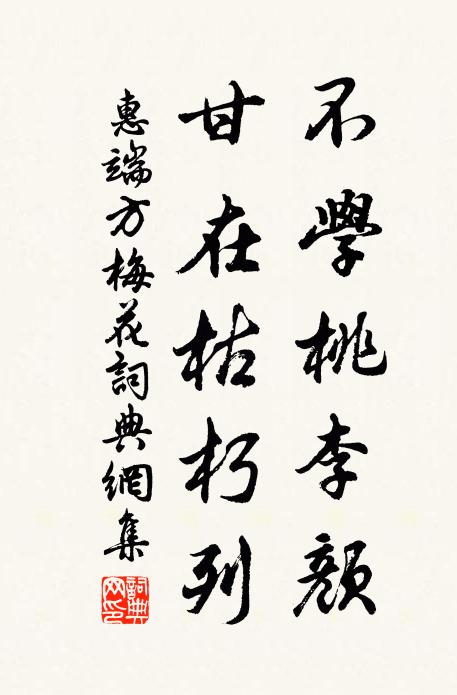 不學桃李顏
甘在枯朽列
惠端方梅花詞典網集
詞典網印